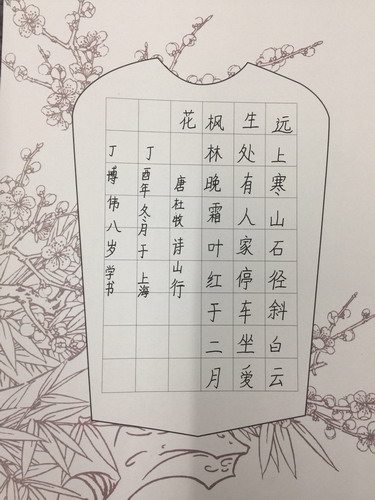 远上寒山石径斜白云
生处有人家停车坐爱
枫林晚霜叶红于二月
花唐杜牧诗山行
丁酉年冬月于上海
丁博伟八岁学书